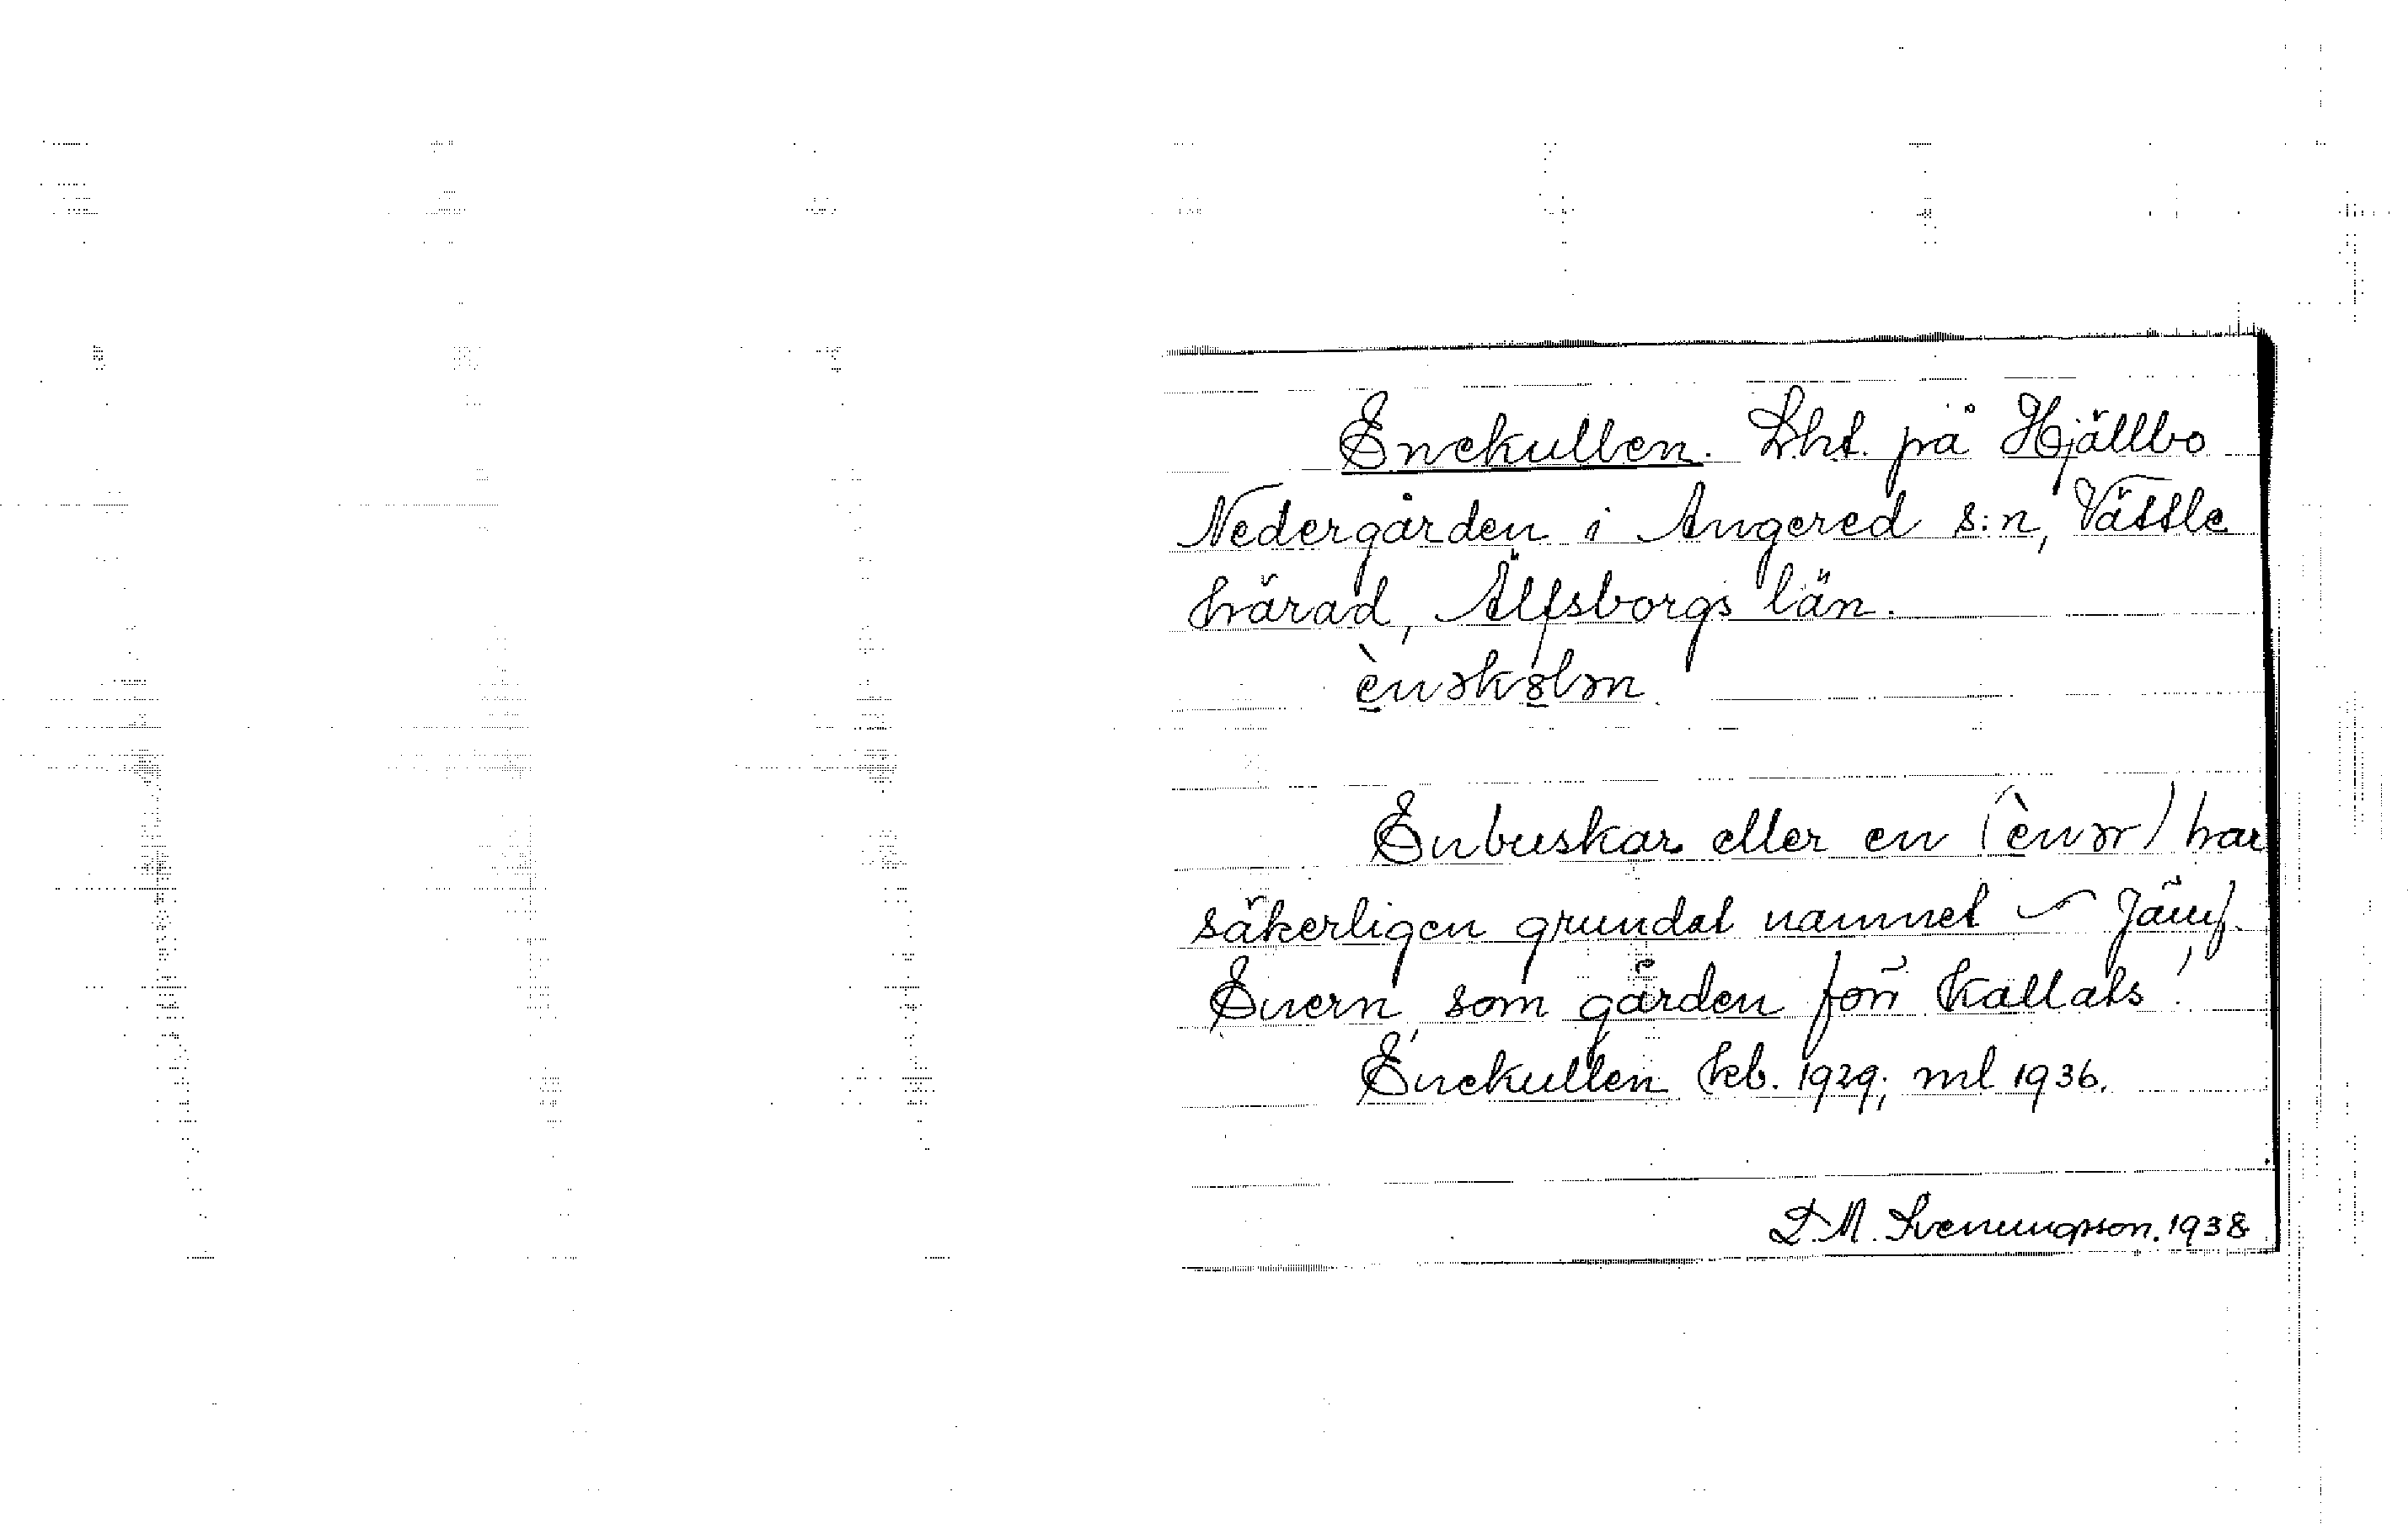 Enekullen. Lht. på Hjällbo
Nedergården i Angered s:n, Vättle
härad, Älfsborgs län.
ènəkɵlən
Enbuskar eller en (ènər) har
säkerligen grundat namnet ~ Jämf.
Enern, som gården förr kallats!
Enekullen kb. 1929; ml 1936.
D. M. Svenungsson. 1938